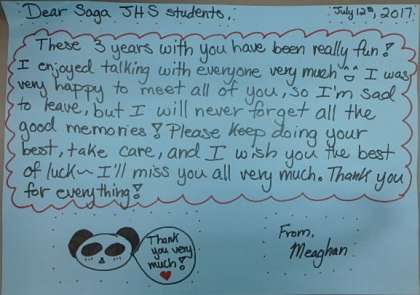 Dear Saga JHS students,
July 12th, 2017
These 3 years with you have been really fun!
I enjoyed talking with everyone very much I was
very happy to meet all of you, so I'm sad
to leave, but I will never forget all the
good memories! Please keep doing your
best, take care, and I wish you the best
of luck~ I'll miss you all very much. Thank you
for everything!
Thank
you very
much!
From,
Meaghan